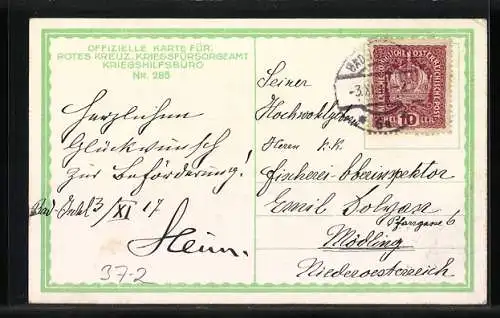 OFFIZIELLE KARTE FÜR
ROTES KREUZ, KRIEGSFÜRSORGEAMT
KRIEGSHILFSBÜRO
NR. 285
Herzlichen
Glückwunsch
zur Beförderung!
3/XI 17
37-2
BAD
-3.
KAIS. KÖN. ÖSTERREICH. POST
10
HELLER
Seiner
Hochwohlgeboren
Herrn k.k.
Fischerei Oberinspektor
Emil
Pfarrgasse 6
Mödling
Niederoesterreich